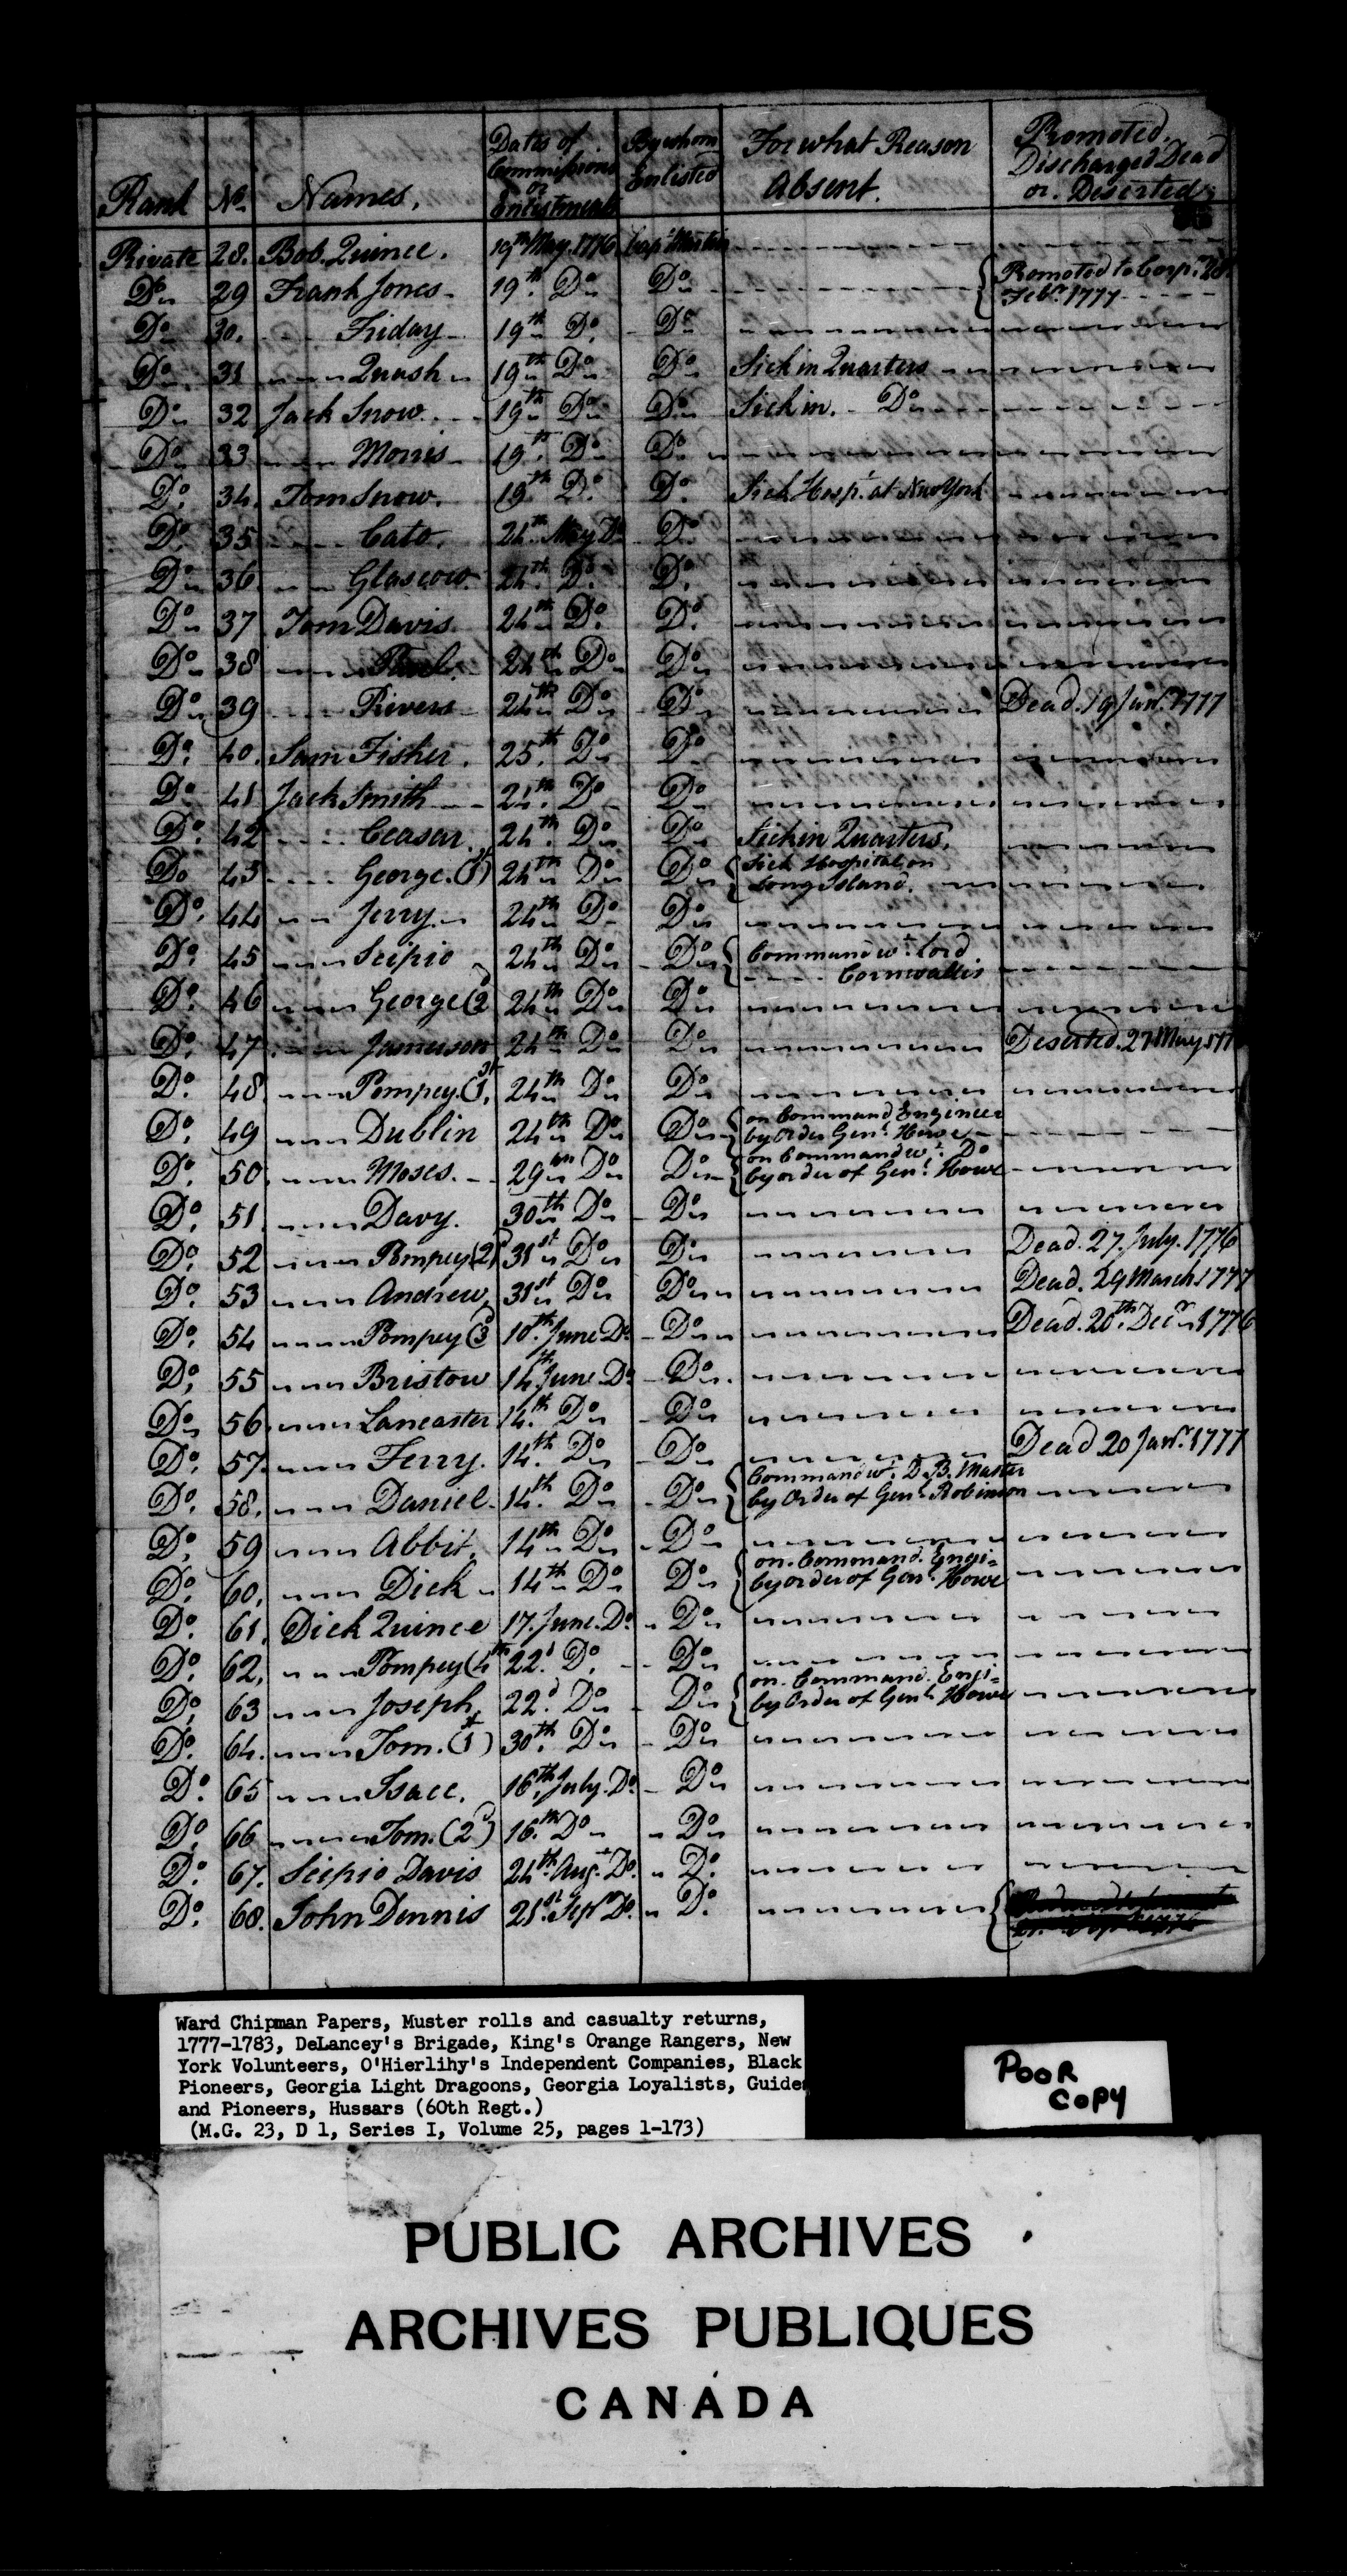 Rank No. Names. Dates of Commissions or Enlistments By whom Enlisted For what Reason Absent. Promoted, Discharged, Dead or Deserted
Private 28. Bob Quince. 19th May. 1776 Capt. Martin
Do 29 Frank Jones 19th Do Do Promoted to Corpl.
Febr. 1777
Do 30. Friday 19th Do Do
Do 31 Quash 19th Do Do Sick in Quarters
Do 32 Jack Snow. 19th Do Do Sick in. Do
Do 33 Morris 19th Do Do
Do 34. Tom Snow. 19th Do Do Sick Hospl. at New York
Do 35 Cato. 24th May Do Do
Do 36 Glascow 24th Do Do
Do 37 Tom Davis 24th Do Do
Do 38 24th Do Do
Do 39 Rivers 24th Do Do Dead. 19 Janr. 1777
Do 40. Sam Fisher. 25th Do Do
Do 41 Jack Smith 24th Do Do
Do 42 Ceasar. 24th Do Do Sick in Quarters.
Do 43 George. (1st) 24th Do Do Sick Hospital on
Long Island.
Do 44 Jerry 24th Do Do
Do 45 Scipio 24th Do Do Command wt. Lord
Cornwallis
Do 46 George (2d 24th Do Do
Do 47. Jameson 24th Do Do Deserted. 27 May
Do 48 Pompey. (1st, 24th Do Do
Do 49 Dublin 24th Do Do on Command Engineer
by Order Genl. Howe
Do 50. Moses. 29th Do Do on Command wt. Do
by order of Genl. Howe
Do 51 Davy. 30th Do Do
Do 52 Pompey (2d) 31st Do Do Dead. 27. July. 1776
Do 53 Andrew 31st Do Do Dead. 29 March 1777
Do 54 Pompey (3d 10th. June Do Do Dead. 20th. Decr. 1776
Do 55 Bristow 14th June Do Do
Do 56. Lancaster 14th Do Do
Do 57. Ferry. 14th Do Do Dead 20 Janr. 1777
Do 58. Daniel 14th Do Do Command wt. D. B. Master
by Order of Genl. Robinson
Do 59 Abbit, 14th Do Do
Do 60. Dick 14th Do Do on Command Engi=
by order of Genl. Howe
Do 61. Dick Quince 17. June. Do Do
Do 62. Pompey (4th 22d Do Do
Do 63 Joseph 22d Do Do on Command. Engi=
by Order of Genl. Howe
Do 64. Tom. (1st) 30th Do Do
Do 65 Isacc. 16th July. Do Do
Do 66 Tom. (2d) 16th Do Do
Do 67. Scipio Davis 24th Augt. Do Do
Do 68. John Dennis 21st Sepr Do Do
Ward Chipman Papers, Muster rolls and casualty returns,
1777-1783, DeLancey's Brigade, King's Orange Rangers, New
York Volunteers, O'Hierlihy's Independent Companies, Black
Pioneers, Georgia Light Dragoons, Georgia Loyalists, Guides
and Pioneers, Hussars (60th Regt.)
(M.G. 23, D 1, Series I, Volume 25, pages 1-173)
POOR
COPY
PUBLIC ARCHIVES
ARCHIVES PUBLIQUES
CANADA